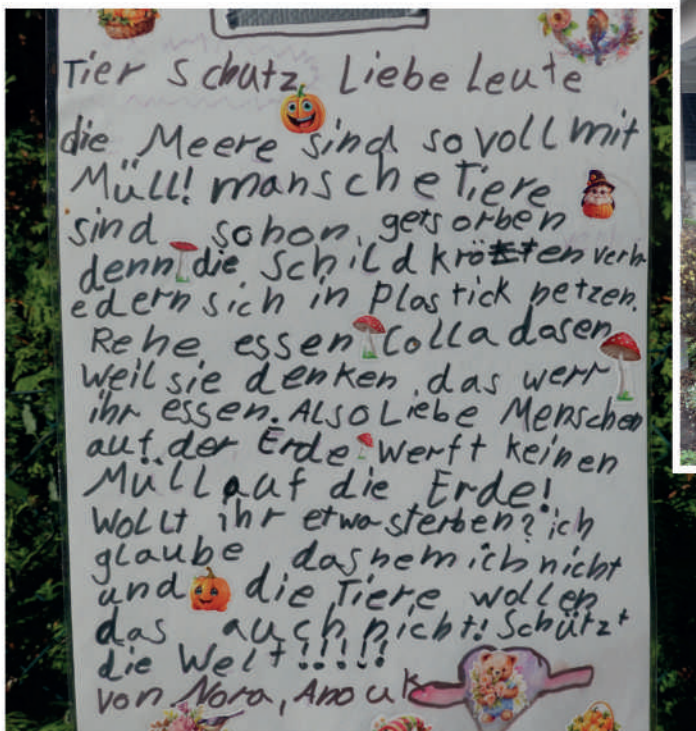 Tier schutz Liebe Leute
die Meere sind so voll mit
Müll! mansche Tiere
sind schon getsorben
denn die Schildkröten verh
edern sich in Plastick netzen.
Rehe essen Colla dosen
weil sie denken, das werr
ihr essen. Also Liebe Menschen
auf der Erde werft keinen
Müll auf die Erde!
Wollt ihr etwa sterben? ich
glaube das nemich nicht
und die Tiere wollen
das auch nicht! Schützt
die Welt!!!!!
von Nora, Anouk